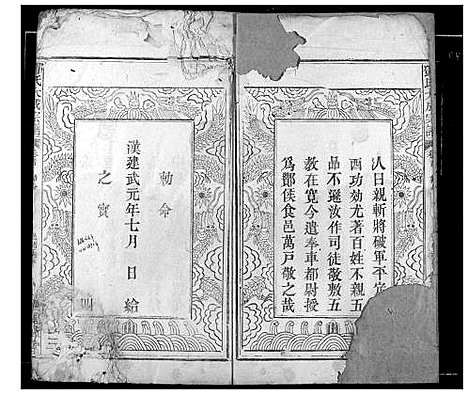 人日親斬將破軍平定
西功効尤著百姓不親五
品不遜汝作司徒敬敷五
教在寛今遣奉車都尉授
為酇侯食邑萬戸敬之哉
勅命
漢建武元年七月 日 給
之寳